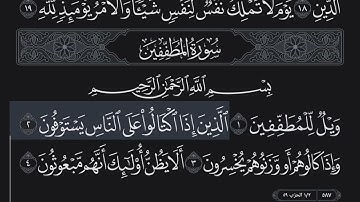 ٱلدِّينِ ١٨ يَوۡمَ لَا تَمۡلِكُ نَفۡسٞ لِّنَفۡسٖ شَيۡـٔٗاۖ وَٱلۡأَمۡرُ يَوۡمَئِذٖ لِّلَّهِ ١٩
سُورَةُ المُطَفِّفِينَ
بِسۡمِ ٱللَّهِ ٱلرَّحۡمَٰنِ ٱلرَّحِيمِ
وَيۡلٞ لِّلۡمُطَفِّفِينَ ١ ٱلَّذِينَ إِذَا ٱكۡتَالُواْ عَلَى ٱلنَّاسِ يَسۡتَوۡفُونَ ٢
وَإِذَا كَالُوهُمۡ أَو وَّزَنُوهُمۡ يُخۡسِرُونَ ٣ أَلَا يَظُنُّ أُوْلَٰٓئِكَ أَنَّهُم مَّبۡعُوثُونَ ٤
٥٨٧
١/٢ الحزب ٥٩